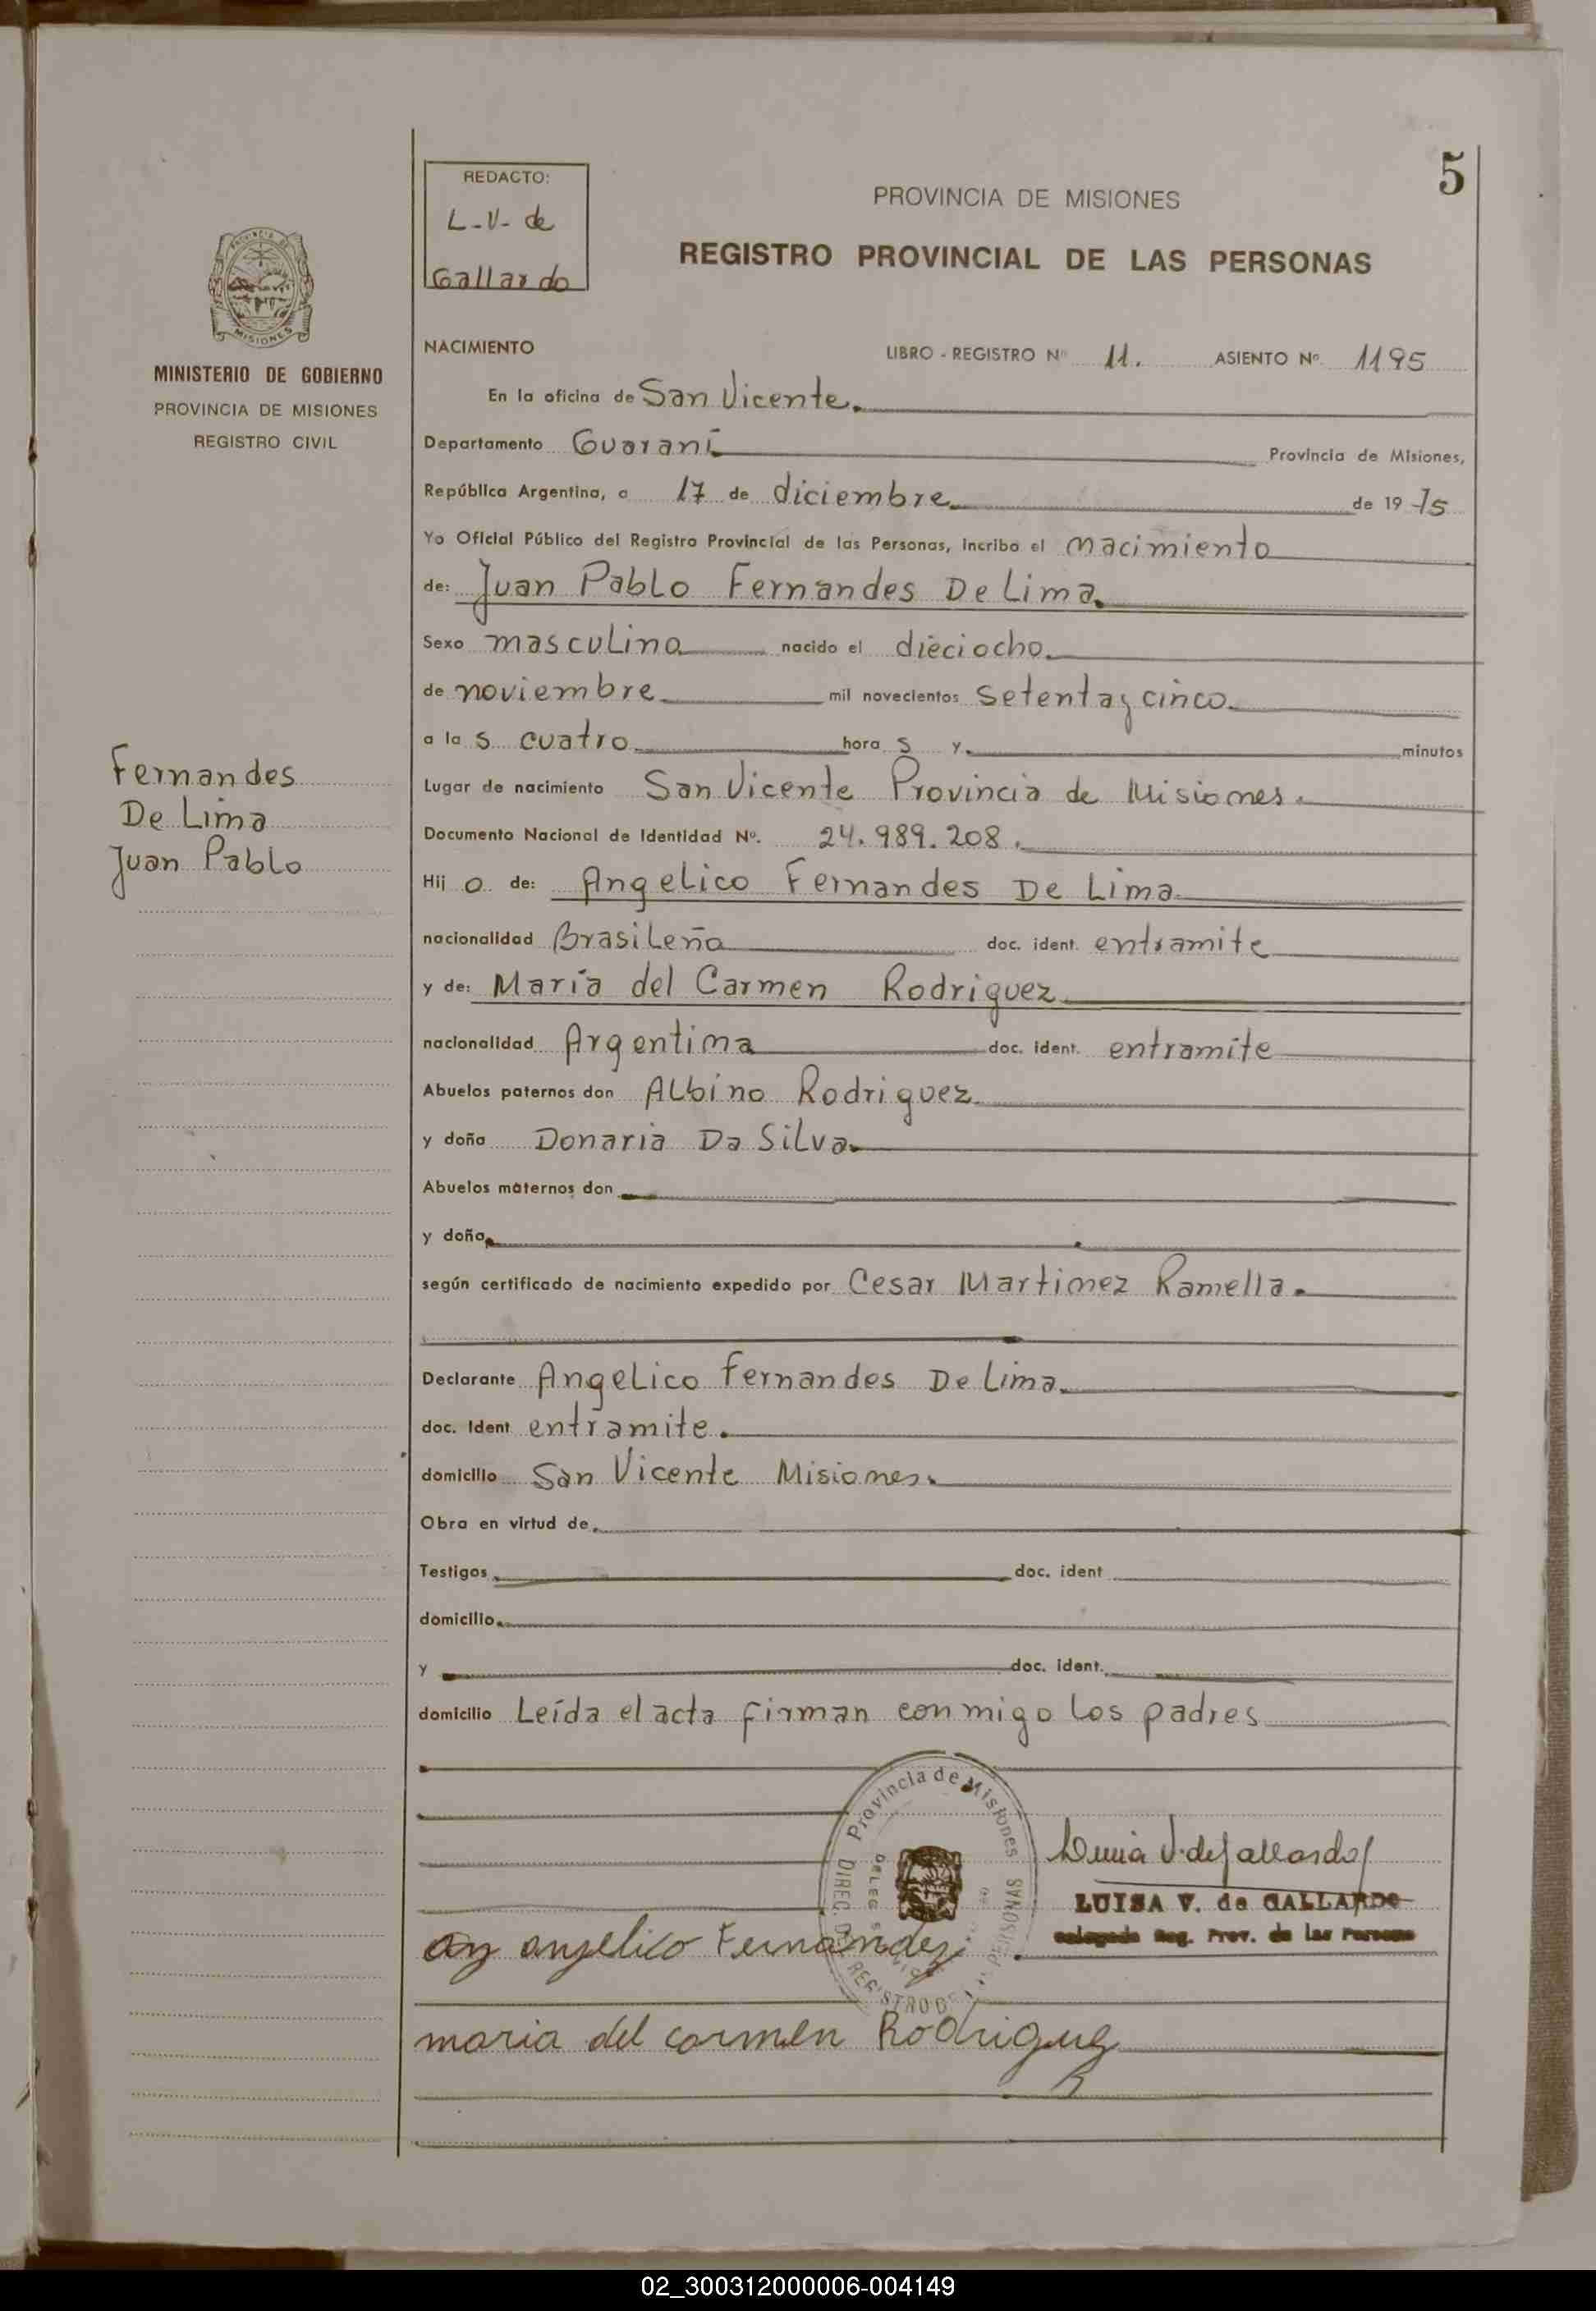 5
REDACTO:
L-V- de
Gallardo
PROVINCIA DE MISIONES
REGISTRO PROVINCIAL DE LAS PERSONAS
MISIONES
MINISTERIO DE GOBIERNO
PROVINCIA DE MISIONES
REGISTRO CIVIL
NACIMIENTO LIBRO - REGISTRO Nº 11. ASIENTO Nº 1195
En la oficina de San Vicente.
Departamento Guaraní Provincia de Misiones,
República Argentina, a 17 de diciembre de 19 75
Yo Oficial Público del Registro Provincial de las Personas, inscribo el nacimiento
de: Juan Pablo Fernandes De Lima.
Sexo masculino nacido el dieciocho.
de noviembre mil novecientos setenta y cinco.
a la s cuatro hora s y minutos
Fernandes
De Lima
Juan Pablo
Lugar de nacimiento San Vicente Provincia de Misiones.
Documento Nacional de Identidad Nº. 24.989.208.
Hij o de: Angelico Fernandes De Lima
nacionalidad Brasileña doc. ident. entramite
y de: María del Carmen Rodriguez
nacionalidad Argentina doc. ident. entramite
Abuelos paternos don Albino Rodriguez
y doña Donaria Da Silva.
Abuelos maternos don
y doña
según certificado de nacimiento expedido por Cesar Martinez Ramella.
Declarante Angelico Fernandes De Lima.
doc. Ident entramite.
domicilio San Vicente Misiones.
Obra en virtud de
Testigos doc. ident
domicilio
y doc. ident.
domicilio Leída el acta firman conmigo los padres
Provincia de Misiones
LUISA V. de GALLARDO
Delegada Reg. Prov. de las Personas
angelico Fernandez
maria del carmen Rodriguez
02_300312000006-004149